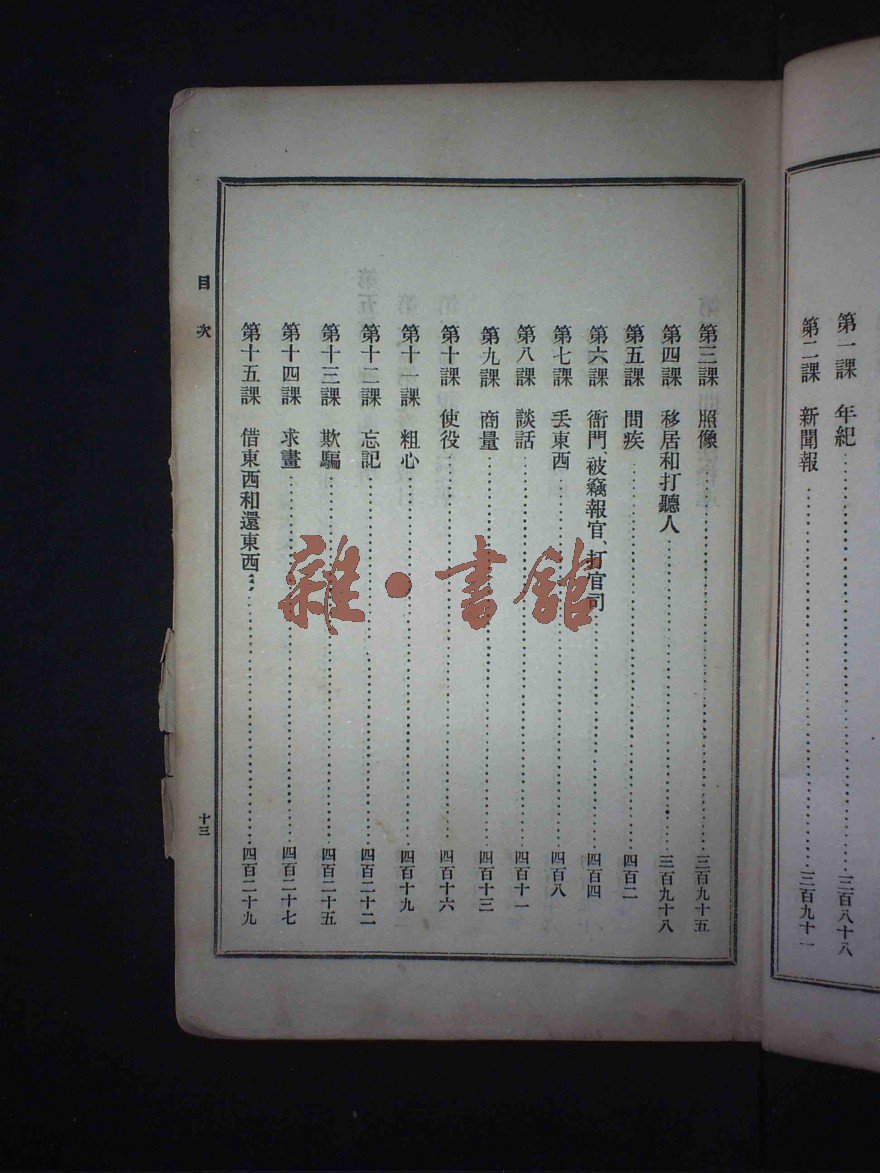 第一課 年紀……三百八十八
第二課 新聞報……三百九十一
第三課 照像……三百九十五
第四課 移居和打聽人……三百九十八
第五課 問疾……四百二
第六課 衙門、被竊報官、打官司……四百四
第七課 丢東西……四百八
第八課 談話……四百十一
第九課 商量……四百十三
第十課 使役……四百十六
第十一課 粗心……四百十九
第十二課 忘記……四百二十二
第十三課 欺騙……四百二十五
第十四課 求畫……四百二十七
第十五課 借東西和還東西……四百二十九
目次
十三
雜·書館